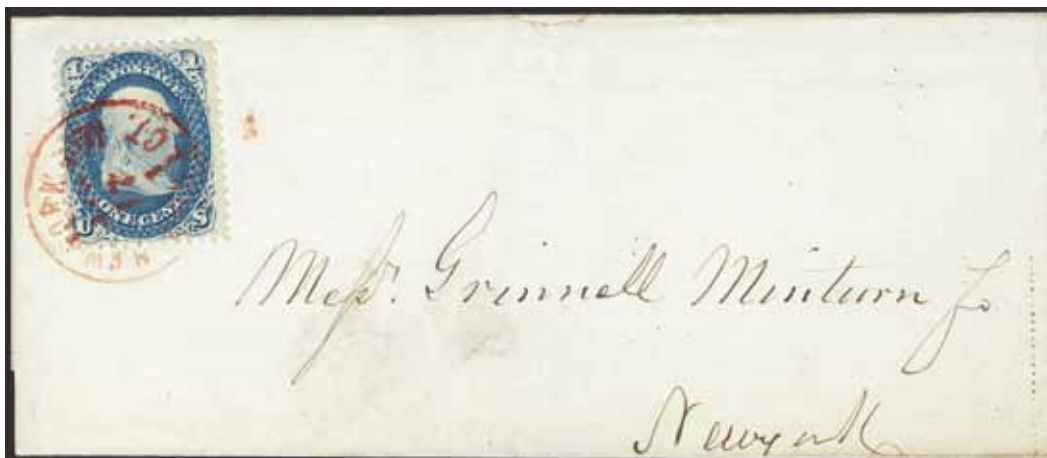 U.S. POSTAGE
ONE CENT
NEW YORK
Messrs. Grinnell Minturn Co
New york